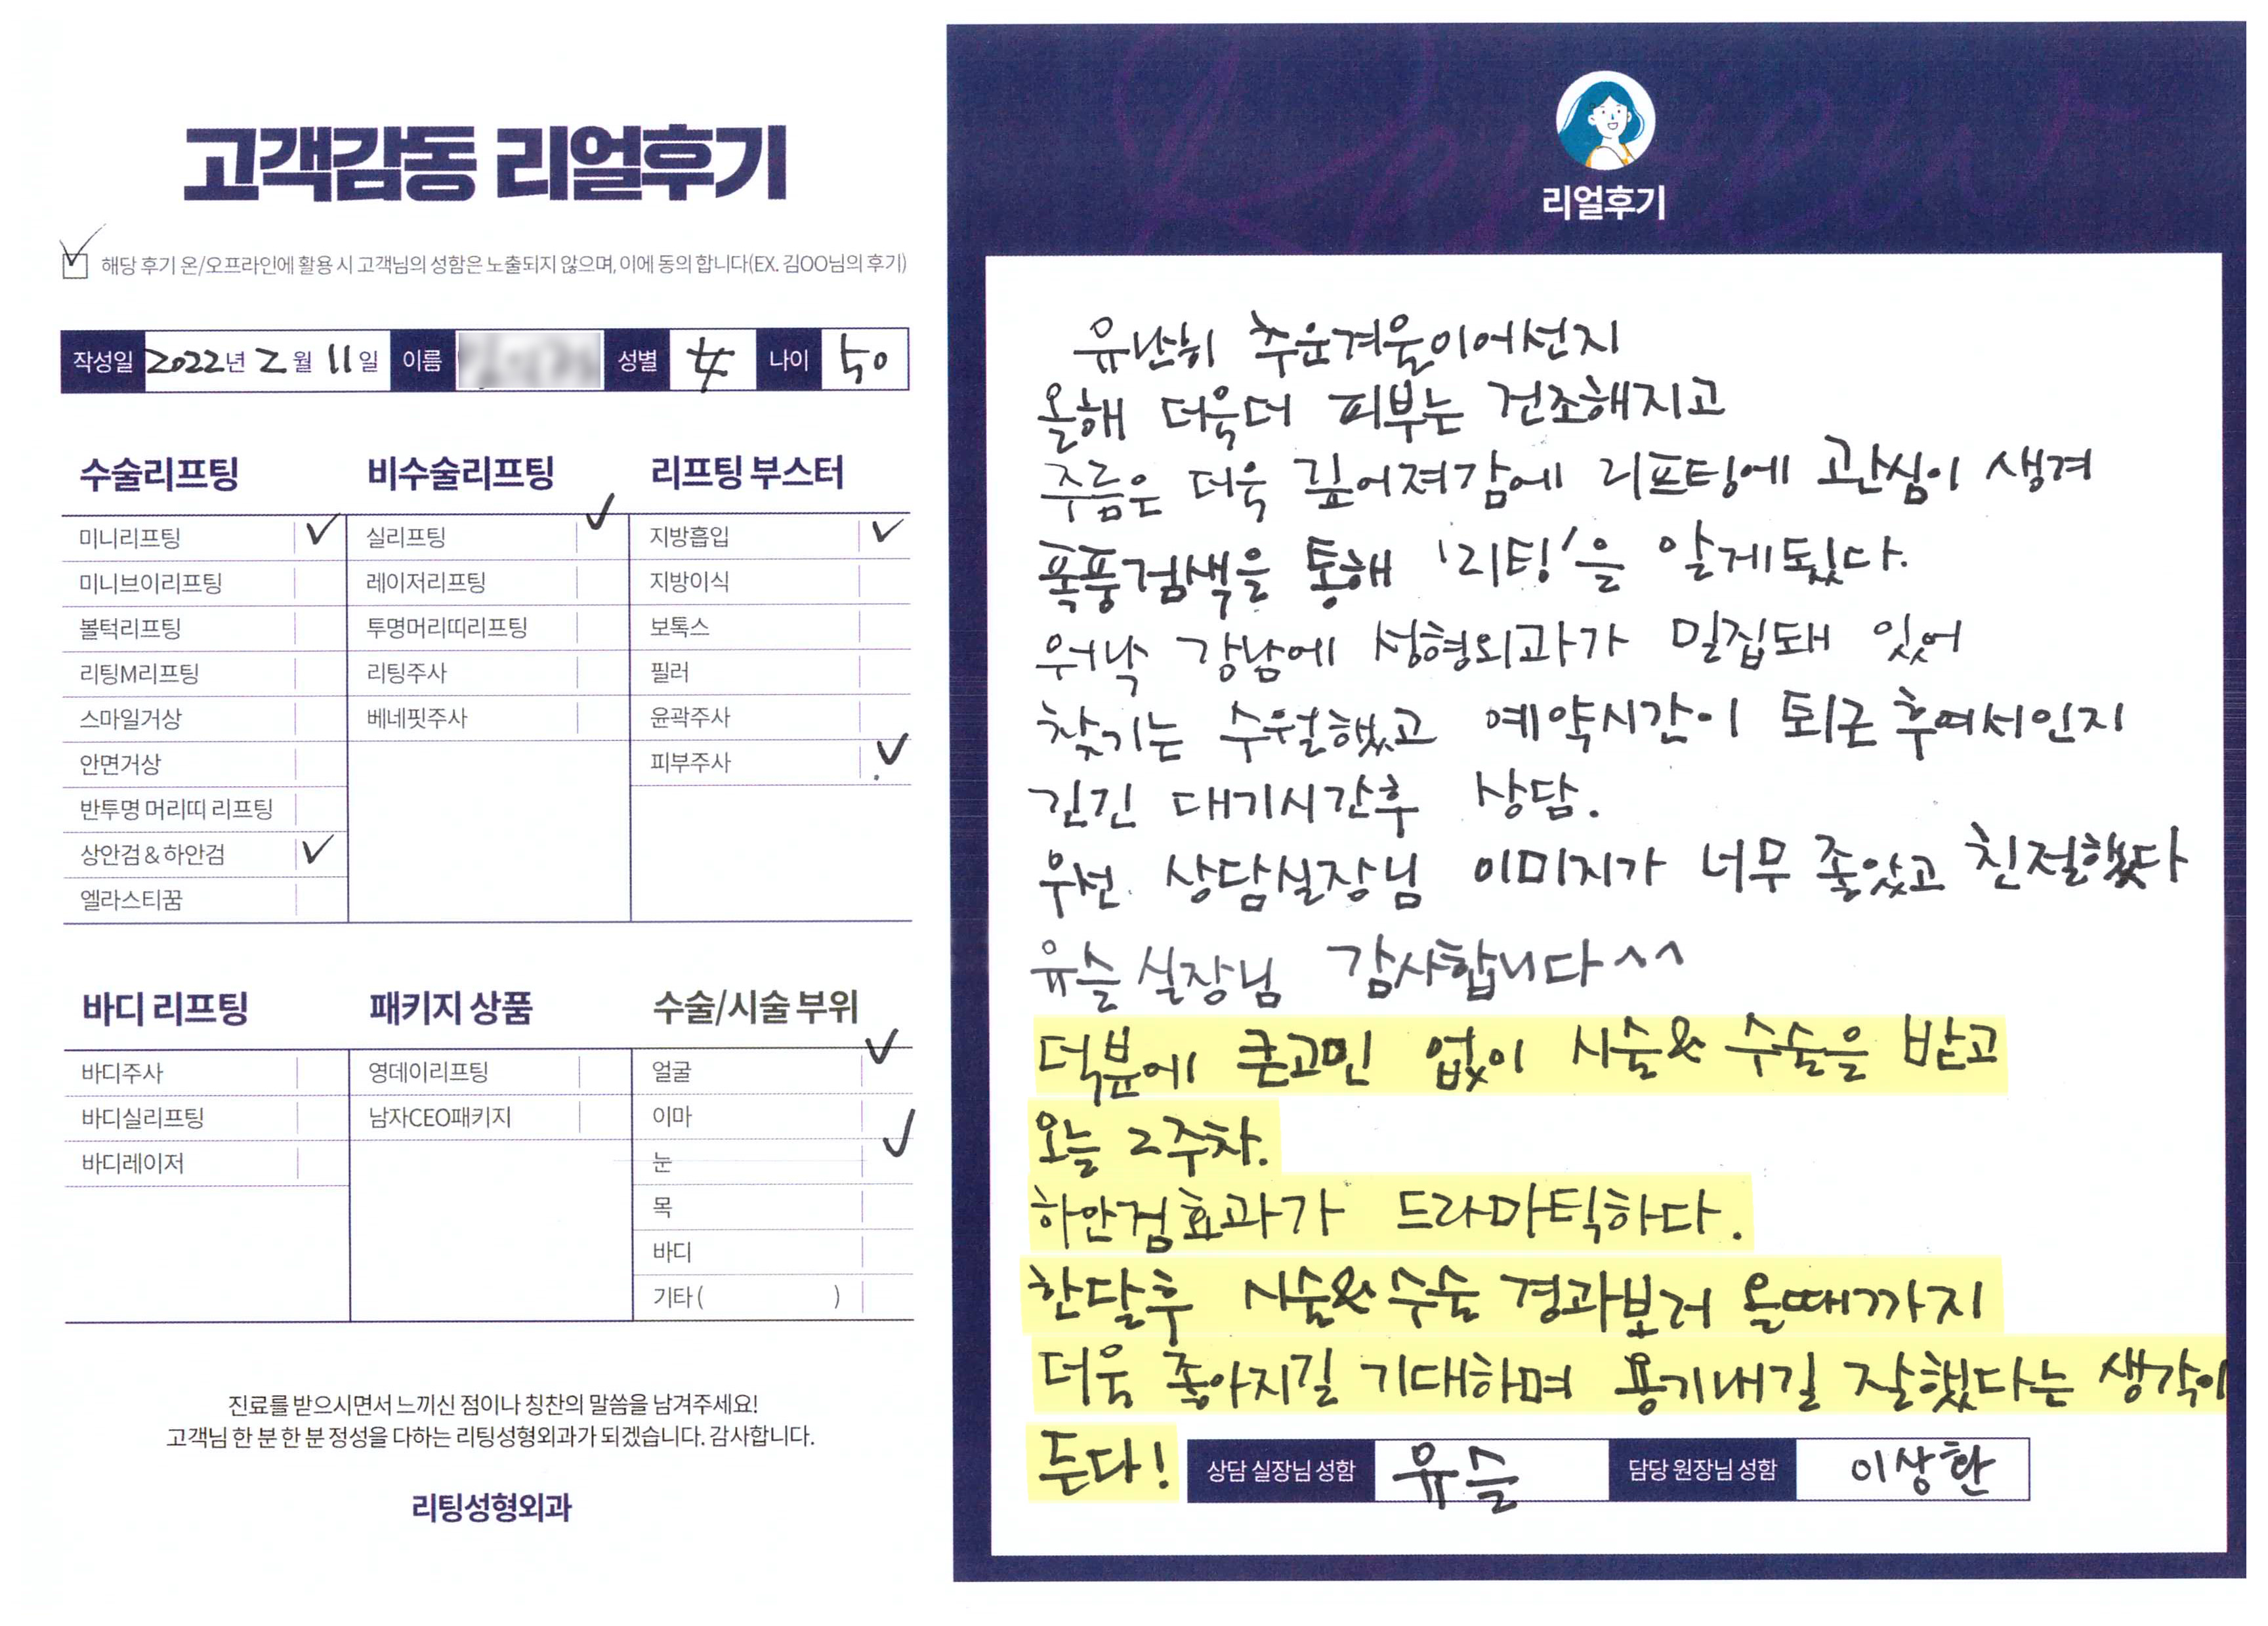 고객감동 리얼후기
해당 후기 온/오프라인에 활용 시 고객님의 성함은 노출되지 않으며, 이에 동의 합니다(EX. 김OO님의 후기)
작성일 2022년 2월 11일 이름 성별 女 나이 50
수술리프팅
미니리프팅 ✓
미니브이리프팅
볼턱리프팅
리팅M리프팅
스마일거상
안면거상
반투명 머리띠 리프팅
상안검 & 하안검 ✓
엘라스티꿈
비수술리프팅
실리프팅 ✓
레이저리프팅
투명머리띠리프팅
리팅주사
베네핏주사
리프팅 부스터
지방흡입 ✓
지방이식
보톡스
필러
윤곽주사
피부주사 ✓
바디 리프팅
바디주사
바디실리프팅
바디레이저
패키지 상품
영데이리프팅
남자CEO패키지
수술/시술 부위
얼굴 ✓
이마
눈 ✓
목
바디
기타 ( )
진료를 받으시면서 느끼신 점이나 칭찬의 말씀을 남겨주세요!
고객님 한 분 한 분 정성을 다하는 리팅성형외과가 되겠습니다. 감사합니다.
리팅성형외과
Review
리얼후기
유난히 추운겨울이어선지
올해 더욱더 피부는 건조해지고
주름은 더욱 깊어져감에 리프팅에 관심이 생겨
폭풍검색을 통해 '리팅'을 알게됬다.
워낙 강남에 성형외과가 밀집돼 있어
찾기는 수월했고 예약시간이 퇴근 후여서인지
긴긴 대기시간후 상담.
우선 상담실장님 이미지가 너무 좋았고 친절했다
유슬 실장님 감사합니다^^
덕분에 큰고민 없이 시술& 수술을 받고
오늘 2주차.
하안검효과가 드라마틱하다.
한달후 시술&수술 경과보러 올때까지
더욱 좋아지길 기대하며 용기내길 잘했다는 생각이
든다!
상담 실장님 성함 유슬 담당 원장님 성함 이상환